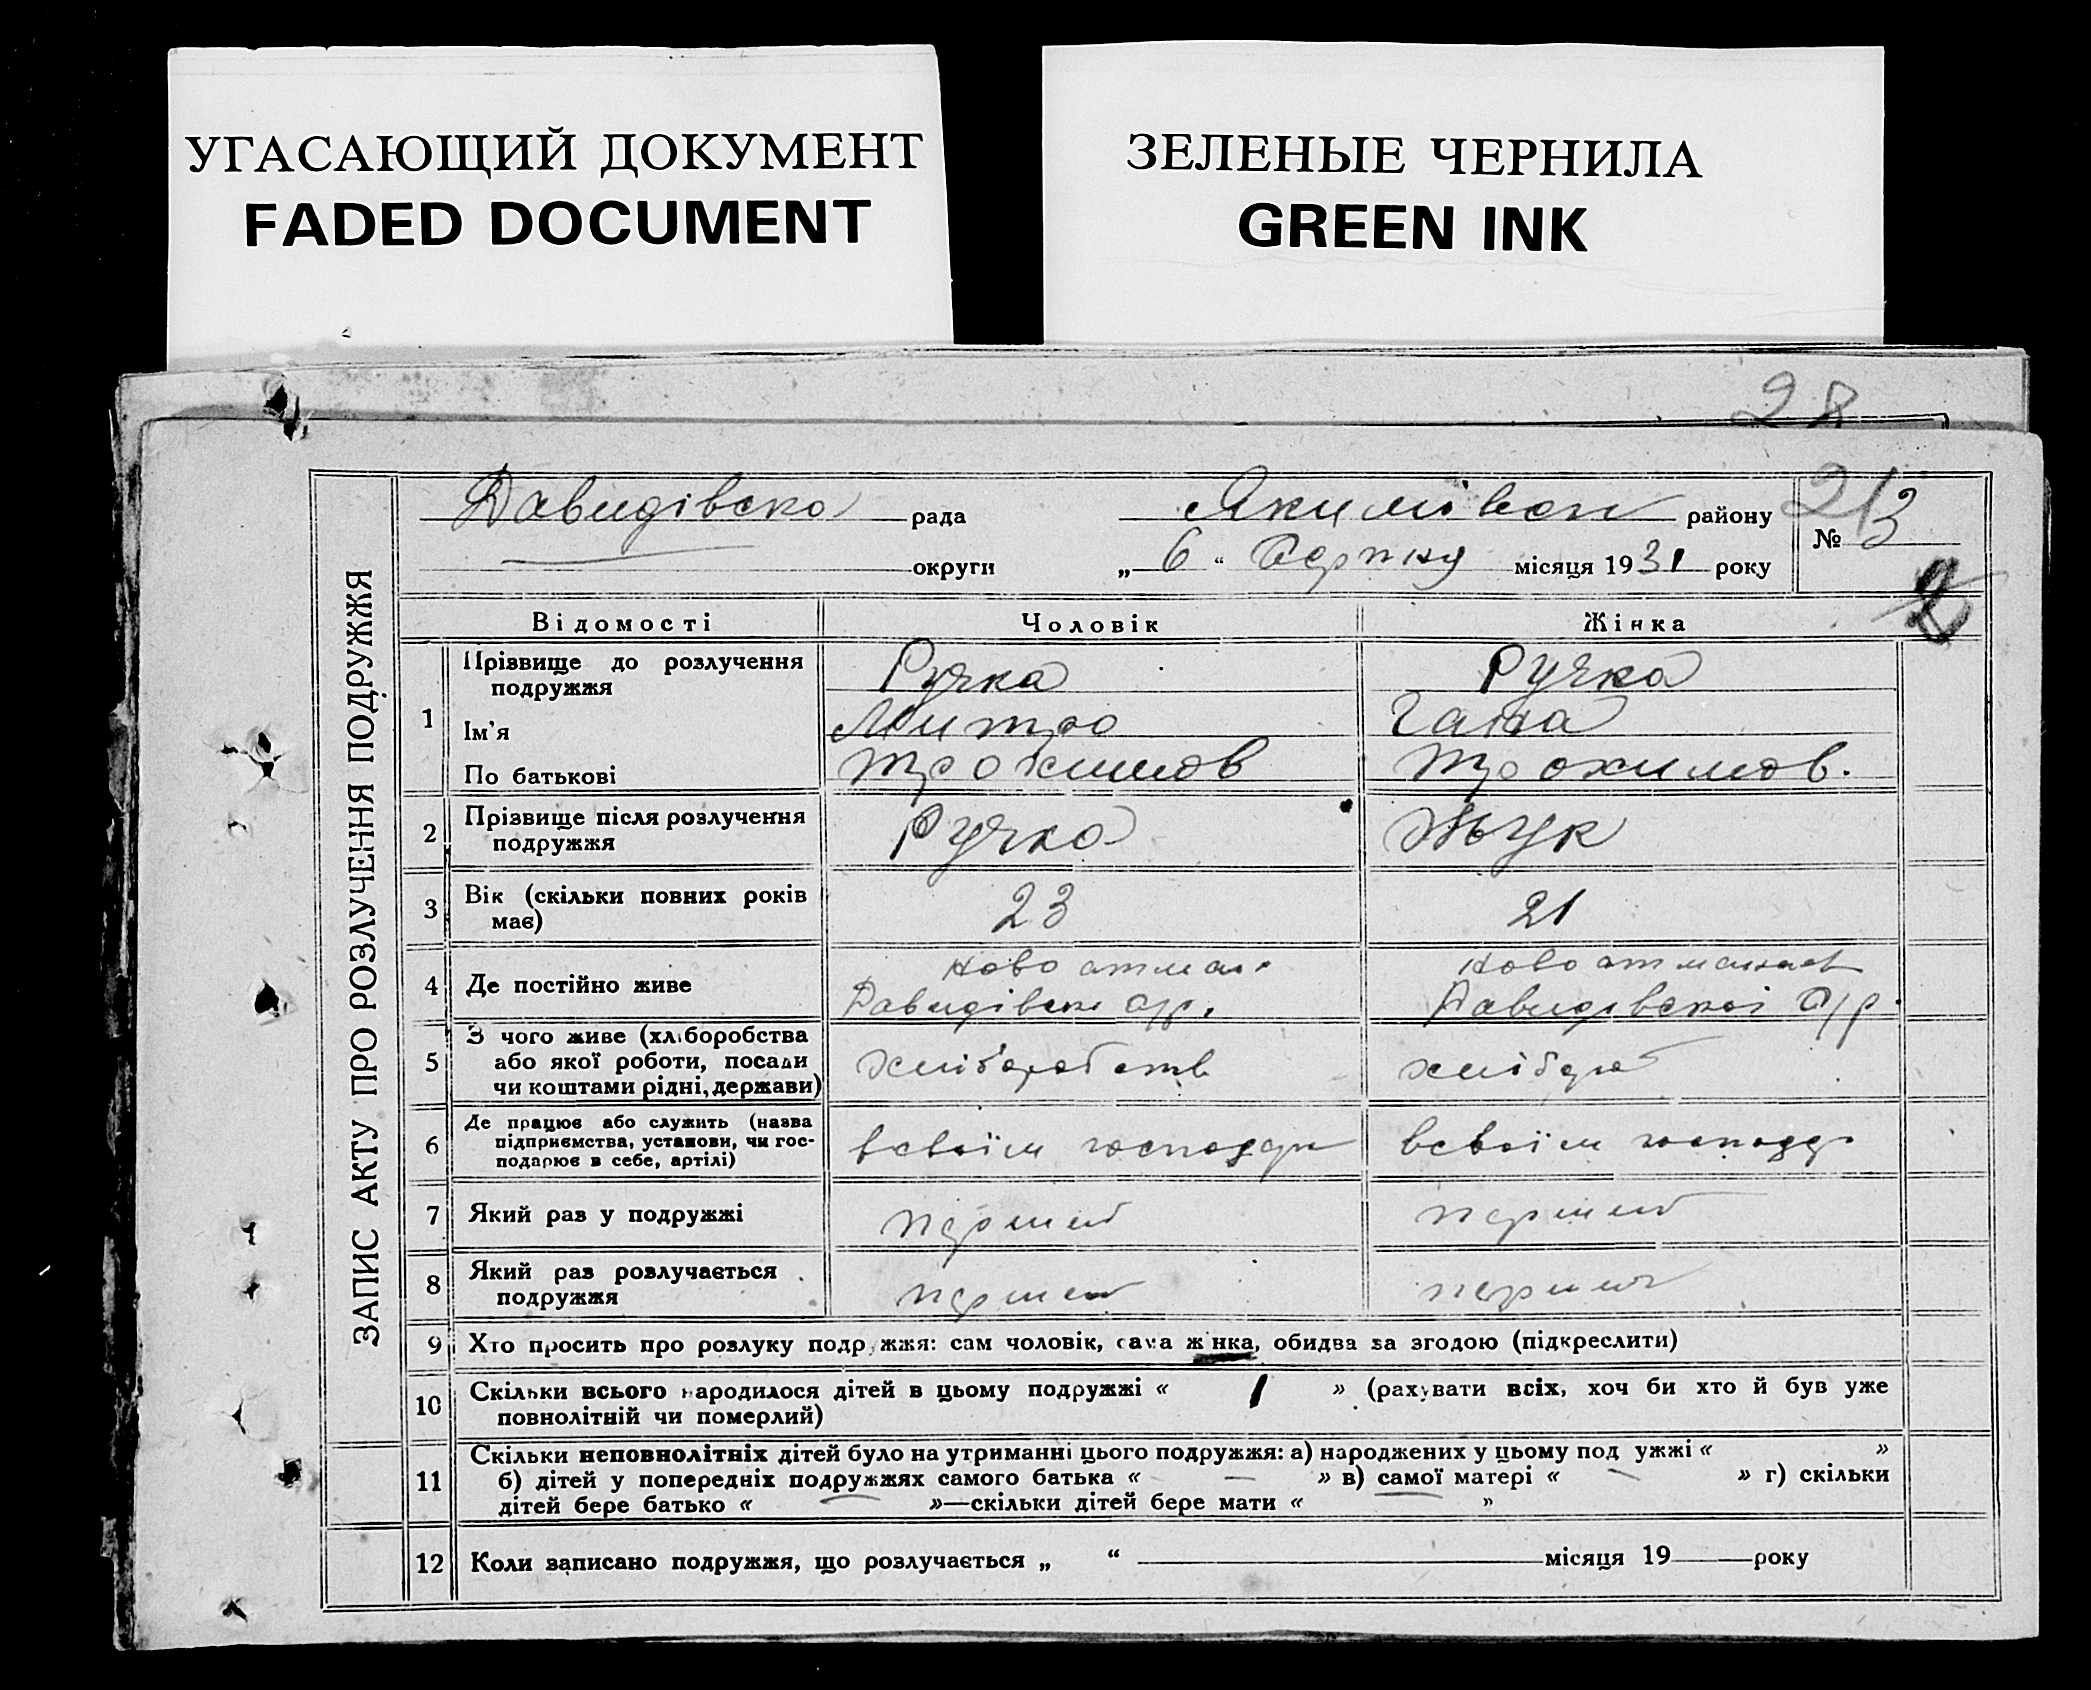 УГАСАЮЩИЙ ДОКУМЕНТ
FADED DOCUMENT
ЗЕЛЕНЫЕ ЧЕРНИЛА
GREEN INK
28
ЗАПИС АКТУ ПРО РОЗЛУЧЕННЯ ПОДРУЖЖЯ
Давидівска рада Якимівск району
№ 3
округи „ 6 “ Серпня місяця 1931 року
Відомості Чоловік Жінка
1 Прізвище до розлучення подружжя Ручка Ручка
Ім'я Митро Гана
По батькові Трохимов Трохимов.
2 Прізвище після розлучення подружжя Ручка Жук
3 Вік (скільки повних років має) 23 21
4 Де постійно живе Ново атман Ново атманаєв
Давидівск с/р. Давидівскої с/р
5 З чого живе (хліборобства або якої роботи, посади чи коштами рідні, держави) хліборобств хлібороб
6 Де працює або служить (назва підприємства, установи, чи господарює в себе, артілі) всвоїм господар всвоїм господ
7 Який раз у подружжі перший перший
8 Який раз розлучається подружжя перший перший
9 Хто просить про розлуку подружжя: сам чоловік, сама жінка, обидва за згодою (підкреслити)
10 Скільки всього народилося дітей в цьому подружжі « 1 » (рахувати всіх, хоч би хто й був уже
повнолітній чи померлий)
11 Скільки неповнолітніх дітей було на утриманні цього подружжя: а) народжених у цьому подружжі « »
б) дітей у попередніх подружжях самого батька « — » в) самої матері « — » г) скільки
дітей бере батько « — »—скільки дітей бере мати « »
12 Коли записано подружжя, що розлучається „ “ місяця 19 року